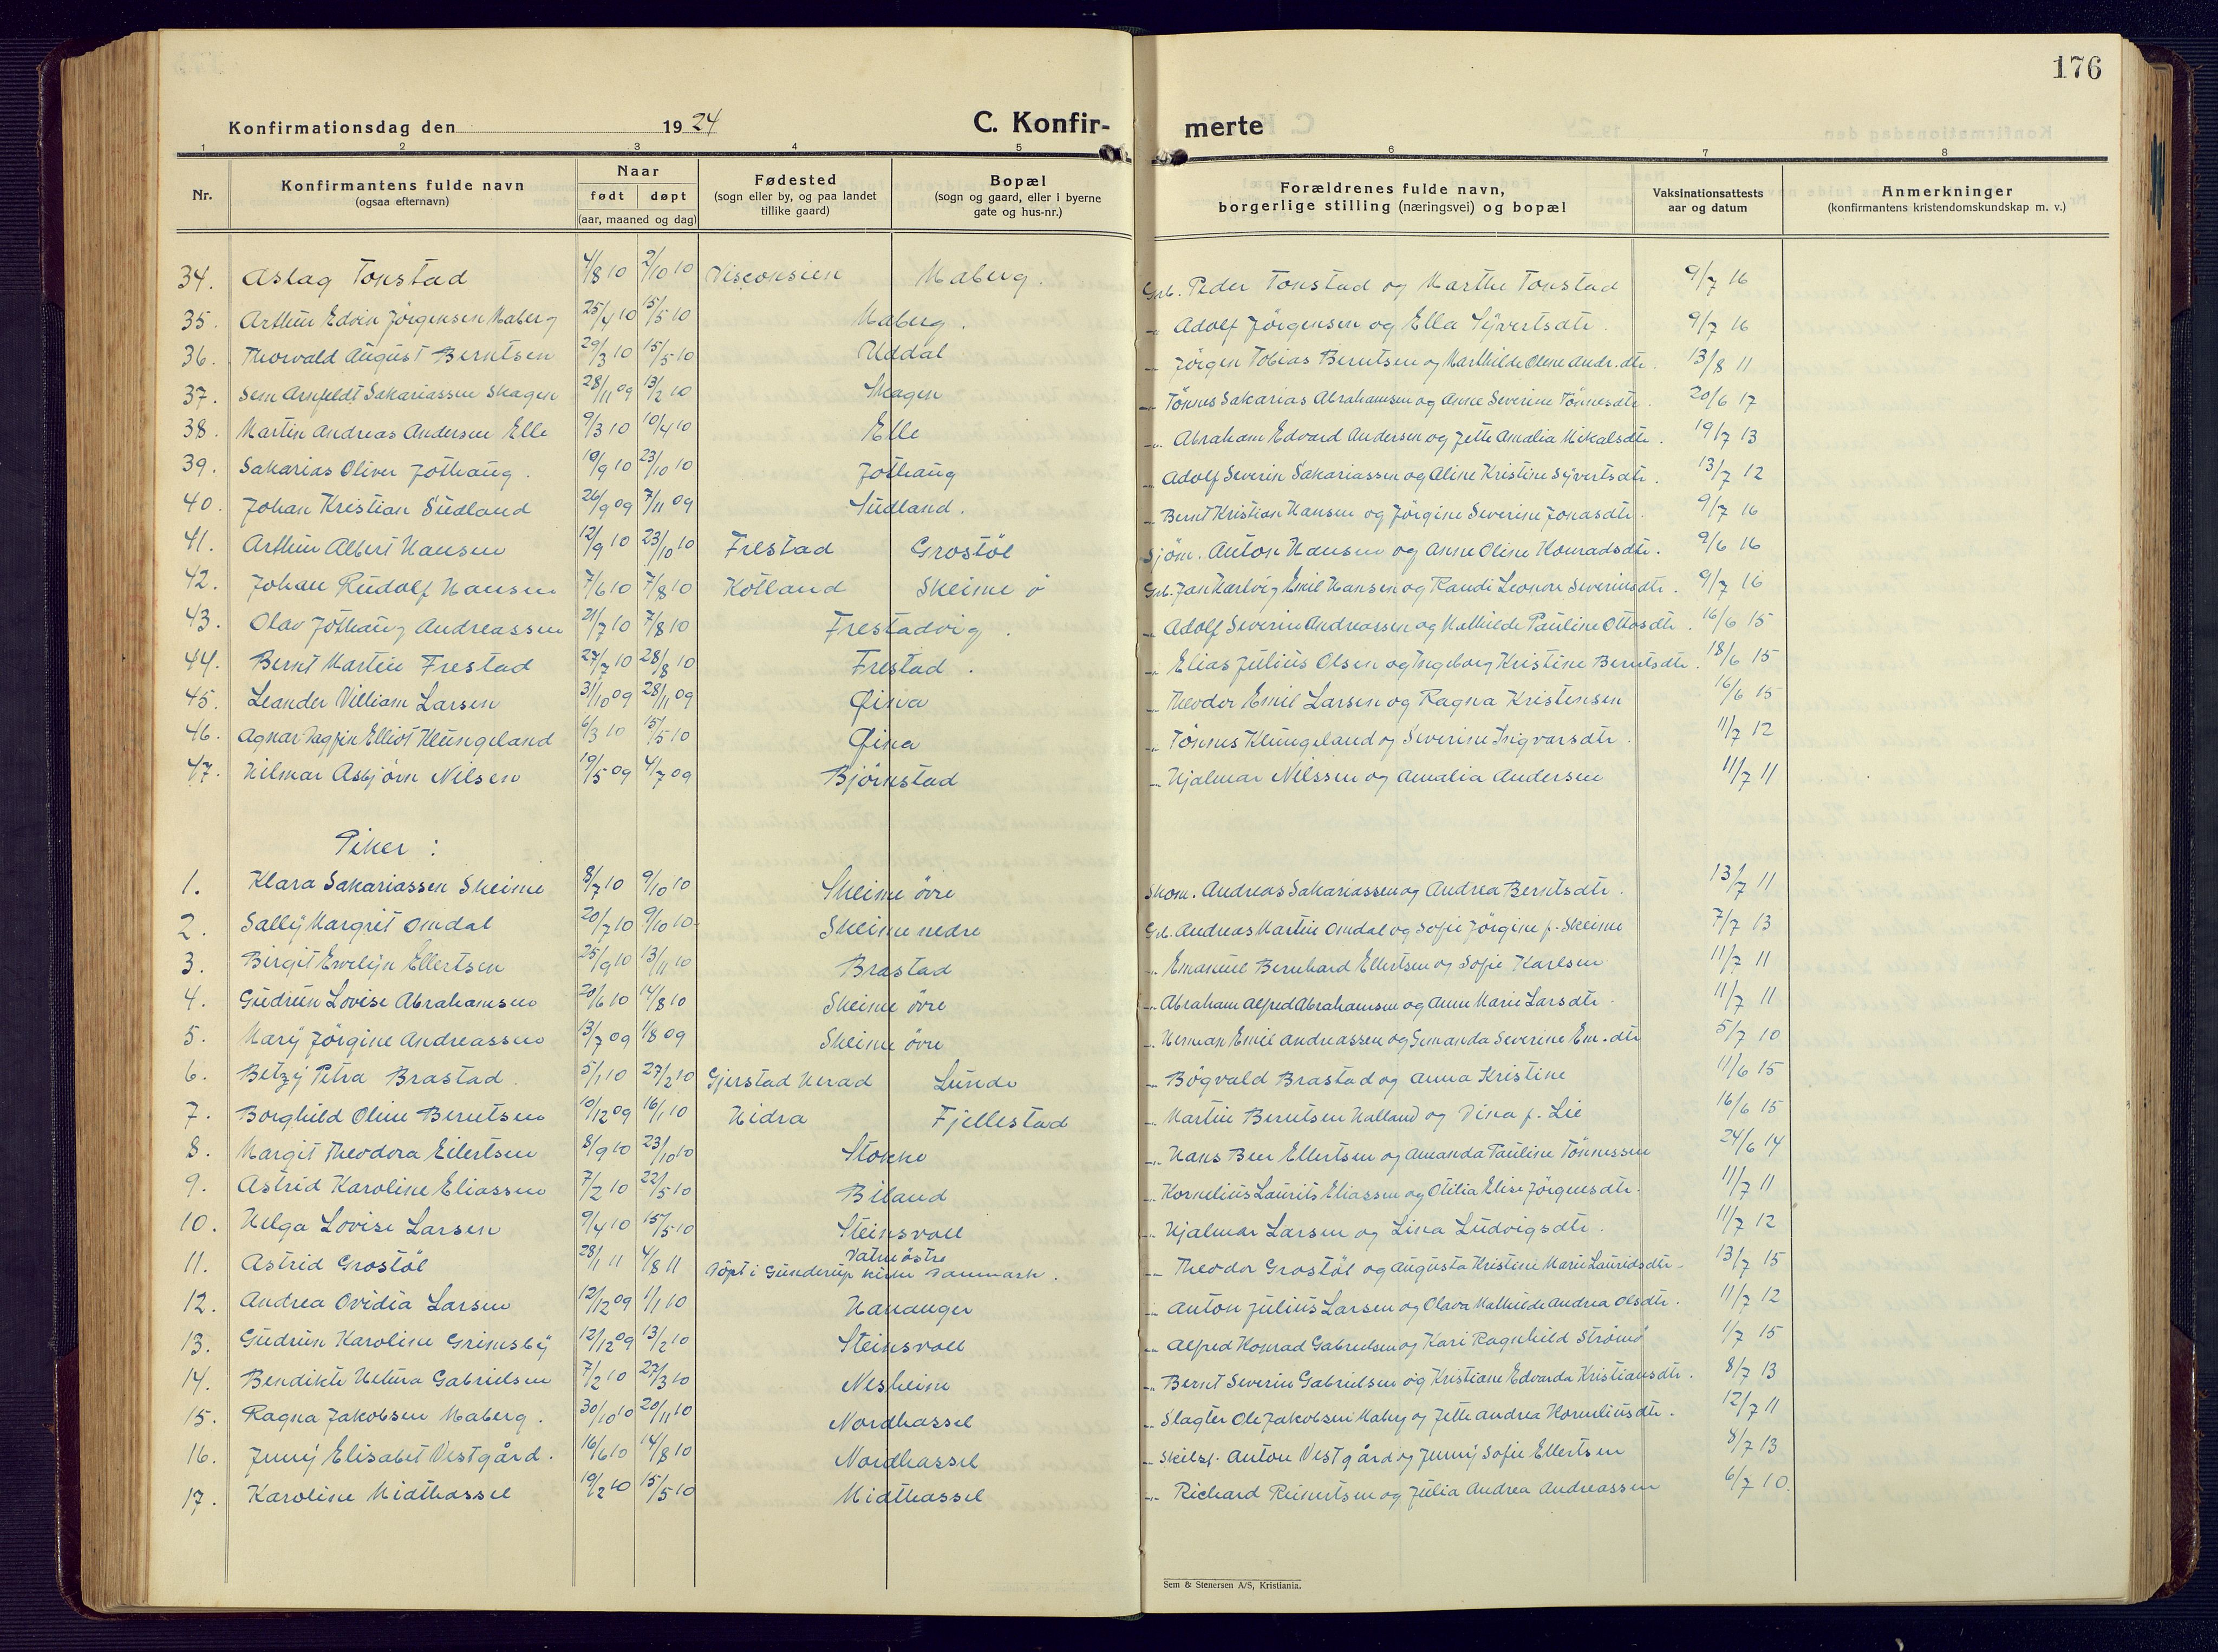 176
Konfirmationsdag den 1924 C. Konfir- merte
1 2 3 4 5 6 7 8
Nr. Konfirmantens fulde navn (ogsaa efternavn) Naar født døpt (aar, maaned og dag) Fødested (sogn eller by, og paa landet tillike gaard) Bopæl (sogn og gaard, eller i byerne gate og hus-nr.) Forældrenes fulde navn, borgerlige stilling (næringsvei) og bopæl Vaksinationsattests aar og datum Anmerkninger (konfirmantens kristendomskundskap m. v.)
34. Aslag Tonstad 4/8 10 2/10 10 Visconsien Maberg. Grb. Peder Tonstad og Marthe Tonstad 9/7 16
35. Arthur Edvin Jörgensen Maberg 25/4 10 15/5 10 Maberg. -"- Adolf Jörgensen og Ella Syvertsdtr. 9/7 16
36. Thorvald August Berntsen 29/3 10 15/5 10 Uddal -"- Jörgen Tobias Berntsen og Marthilde Olene Andr.dtr. 13/8 11
37. Sem Arnfeldt Sakariassen Skagen 28/11 09 13/2 10 Skagen -"- Tönnes Sakarias Abrahamsen og Anne Severine Tönnesdtr. 20/6 17
38. Martin Andreas Andersen Elle 9/3 10 10/4 10 Elle -"- Abraham Edvard Andersen og Jette Amalia Mikalsdtr. 19/7 13
39. Sakarias Oliver Jöthaug. 19/9 10 23/10 10 Jöthaug -"- Adolf Severin Sakariassen og Aline Kristine Syvertsdtr. 13/7 12
40. Johan Kristian Sudland 26/9 09 7/11 09 Sudland. -"- Bernt Kristian Hansen og Jörgine Severine Jonasdtr. 9/7 16
41. Arthur Albert Hansen 12/9 10 23/10 10 Frestad Grostöl Sjöm. Anton Hansen og Anne Oline Konradsdtr. 9/6 16
42. Johan Rudolf Hansen 7/6 10 7/8 10 Kötland Skeime ö Grb. Jan Hartvig Emil Hansen og Randi Leonore Severinsdtr. 9/7 16
43. Olav Jöthaug Andreassen 21/7 10 7/8 10 Frestadvig. -"- Adolf Severin Andreassen og Mathilde Pauline Ottosdtr. 16/6 15
44. Bernt Martin Frestad 27/7 10 28/8 10 Frestad. -"- Elias Julius Olsen og Ingeborg Kristine Berntsdtr. 18/6 15
45. Leander Villiam Larsen 31/10 09 28/11 09 Öina -"- Theodor Emil Larsen og Ragna Kristensen 16/6 15
46. Agnar Dagfin Elliot Klungeland 6/3 10 15/5 10 Öina -"- Tönnes Klungeland og Severine Ingvarsdtr. 11/7 12
47. Hilmar Asbjörn Nilsen 19/5 09 4/7 09 Björnstad -"- Hjalmar Nilssen og Amalia Andersen 11/7 11
Piker :
1. Klara Sakariassen Skeime 8/7 10 9/10 10 Skeime övre Skom. Andreas Sakariassen og Andrea Berntsdtr. 13/7 11
2. Sally Margrit Omdal 20/7 10 9/10 10 Skeime nedre Grb. Andreas Martin Omdal og Sofie Jörgine f. Skeime 7/7 13
3. Birgit Evelyn Ellertsen 25/9 10 13/11 10 Brastad -"- Emanuel Bernhard Ellertsen og Sofie Karlsen 11/7 11
4. Gudrun Lovise Abrahamsen 20/6 10 14/8 10 Skeime övre -"- Abraham Alfred Abrahamsen og Anne Marie Larsdtr. 11/7 11
5. Mary Jörgine Andreassen 13/7 09 1/8 09 Skeime övre -"- Herman Emil Andreassen og Severine Em.dtr 5/7 10
6. Betzy Petra Brastad. 5/1 10 27/2 10 Gjerstad Herad Lunde -"- Bögvald Brastad og Anna Kristine 11/6 15
7. Borghild Oline Berntsen 10/12 09 16/1 10 Hidra Fjellestad -"- Martin Berntsen Halland og Dina f. Lie 16/6 15
8. Margit Theodora Eilertsen 8/9 10 23/10 10 Stokke -"- Hans Beer Ellertsen og Amanda Pauline Tönnessen 24/6 14
9. Astrid Karoline Eliassen 7/2 10 22/5 10 Biland -"- Kornelius Laurits Eliassen og Otilia Elise Jörgensdtr. 11/7 11
10. Helga Lovise Larsen 9/4 10 15/5 10 Steinsvoll -"- Hjalmar Larsen og Lina Ludvigsdtr. 11/7 12
11. Astrid Grostöl 28/1 11 4/8 11 Vatne östre Döpt i Gunderup kirke Danmark. -"- Theodor Grostöl og Augusta Kristine Marie Lauridsdtr. 13/7 15
12. Andrea Ovidia Larsen 12/12 09 1/1 10 Hananger -"- Anton Julius Larsen og Olava Mathilde Andrea Olsdtr. 11/7 12
13. Gudrun Karoline Grimsby 12/12 09 13/2 10 Steinsvoll -"- Alfred Konrad Gabrielsen og Kari Ragnhild Strömö 1/7 15
14. Bendikte Helma Gabrielsen 7/2 10 27/3 10 Nesheim -"- Bernt Severin Gabrielsen og Kristiane Edvarda Kristiansdtr. 8/7 13
15. Ragna Jakobsen Maberg. 30/10 10 20/11 10 Nordhassel -"- Slagter Ole Jakobsen Maberg og Jette Andrea Korneliusdtr. 12/7 11
16. Jenny Elisabet Vestgård. 16/6 10 14/8 10 Nordhassel -"- Skilsf. Anton Vestgård og Jenny Sofie Ellertsen 8/7 13
17. Karoline Midthassel 19/2 10 15/5 10 Midthassel -"- Richard Reinertsen og Julia Andrea Andreassen 6/7 10.
Sem & Stenersen A/S, Kristiania.